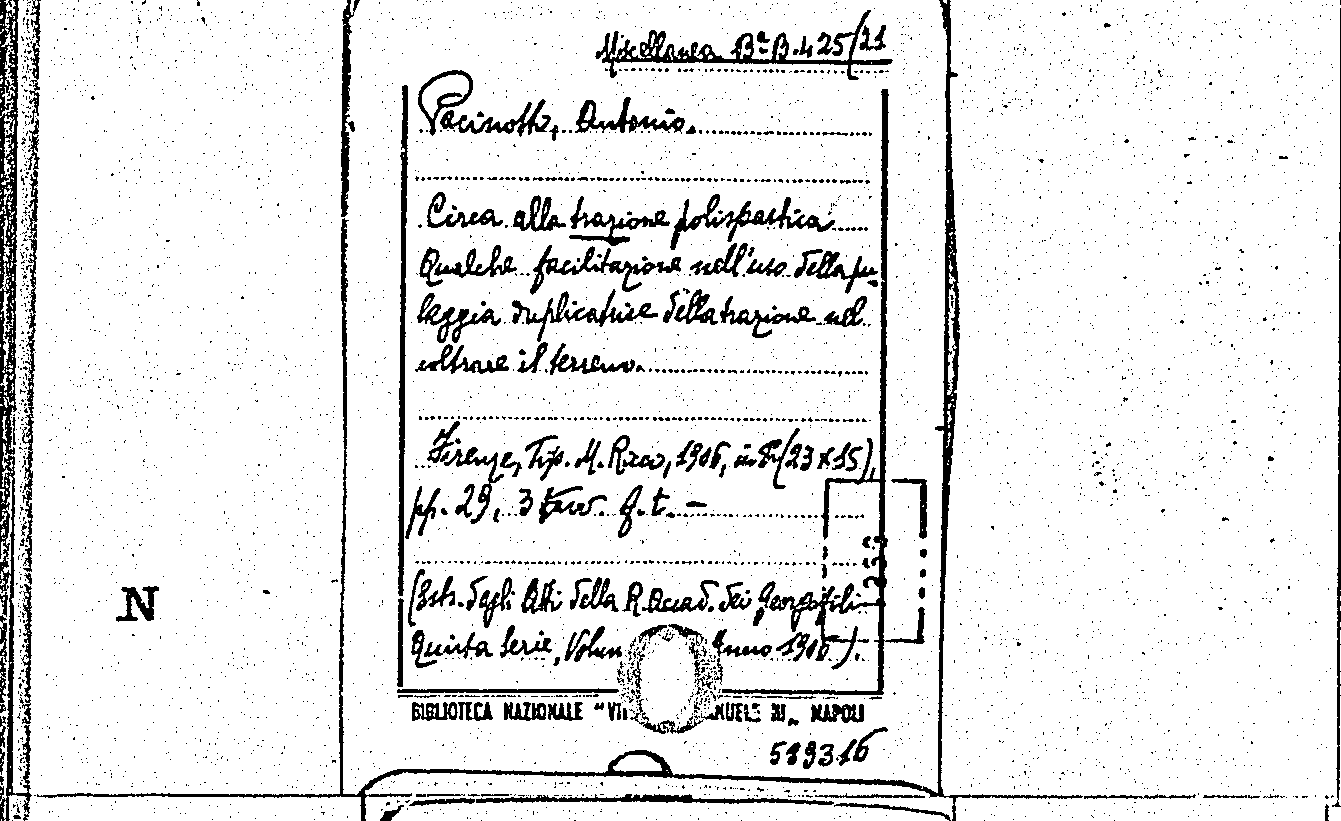 Miscellanea Bª B. 425/21
Pacinotti, Antonio.
Circa alla trazione polispastica
Qualche facilitazione nell'uso della pu-
leggia duplicatrice della trazione nel
coltrare il terreno.
Firenze, Tip. M. Ricci, 1906, in 8º (23x15),
pp. 29, 3 tavv. f. t. —
(Estr. dagli Atti della R. Accad. dei Georgofili -
Quinta Serie, Volum Anno 1906).
BIBLIOTECA NAZIONALE "VIT ANUELE III„ NAPOLI
599316
N